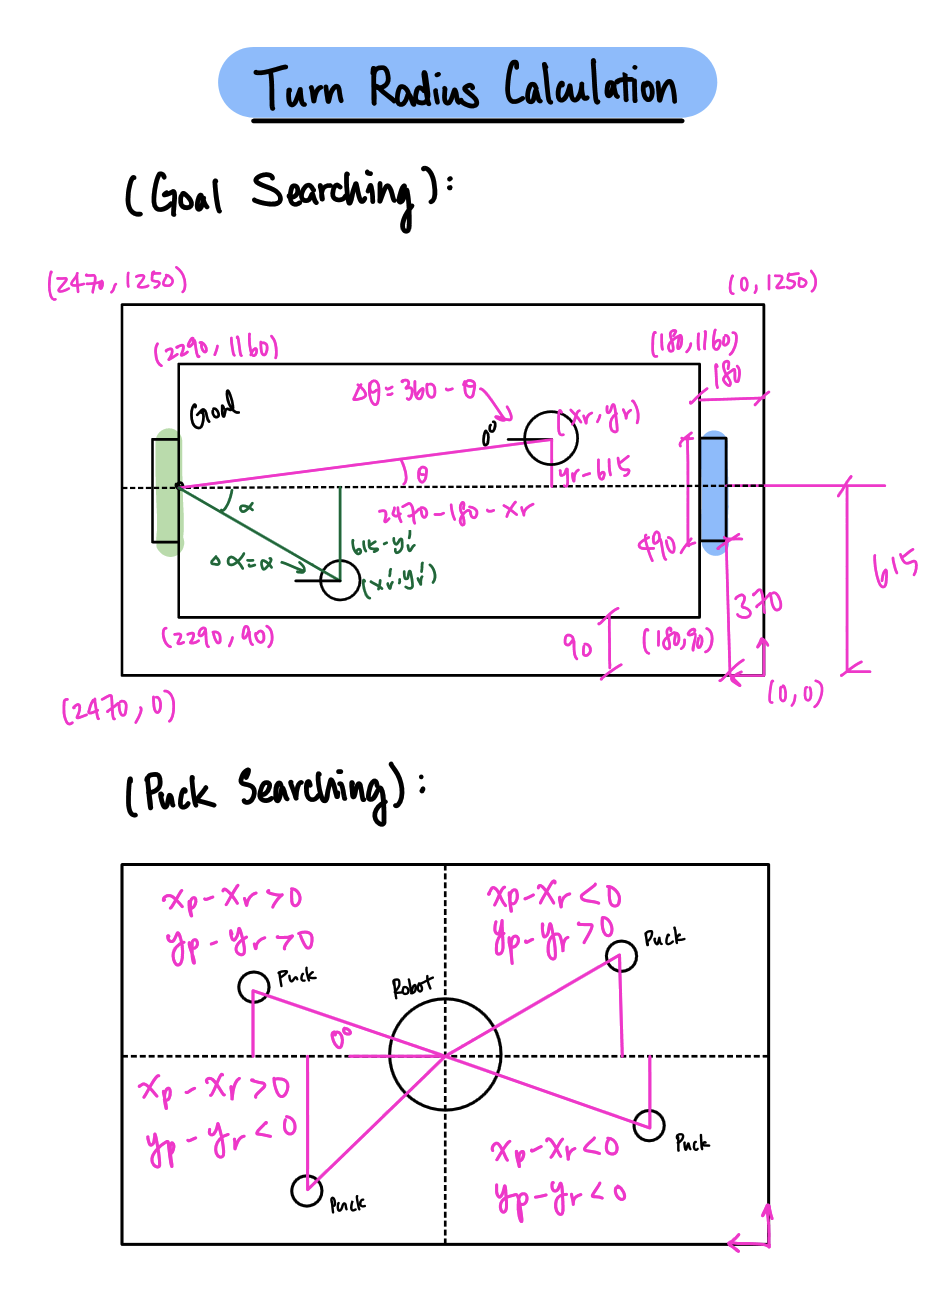 Turn Radius Calculation
(Goal Searching):
(2470, 1250)
(0, 1250)
(2290, 1160)
(180, 1160)
180
Δθ = 360 - θ
Goal
0°
(xr, yr)
θ
yr - 615
α
2470 - 180 - xr
490
615 - yr'
Δα = α
(xr', yr')
615
370
(2290, 90)
90
(180, 90)
(2470, 0)
(0, 0)
(Puck Searching):
xp - xr > 0
xp - xr < 0
yp - yr > 0
yp - yr > 0
Puck
Puck
Robot
0°
xp - xr > 0
yp - yr < 0
xp - xr < 0
Puck
yp - yr < 0
Puck